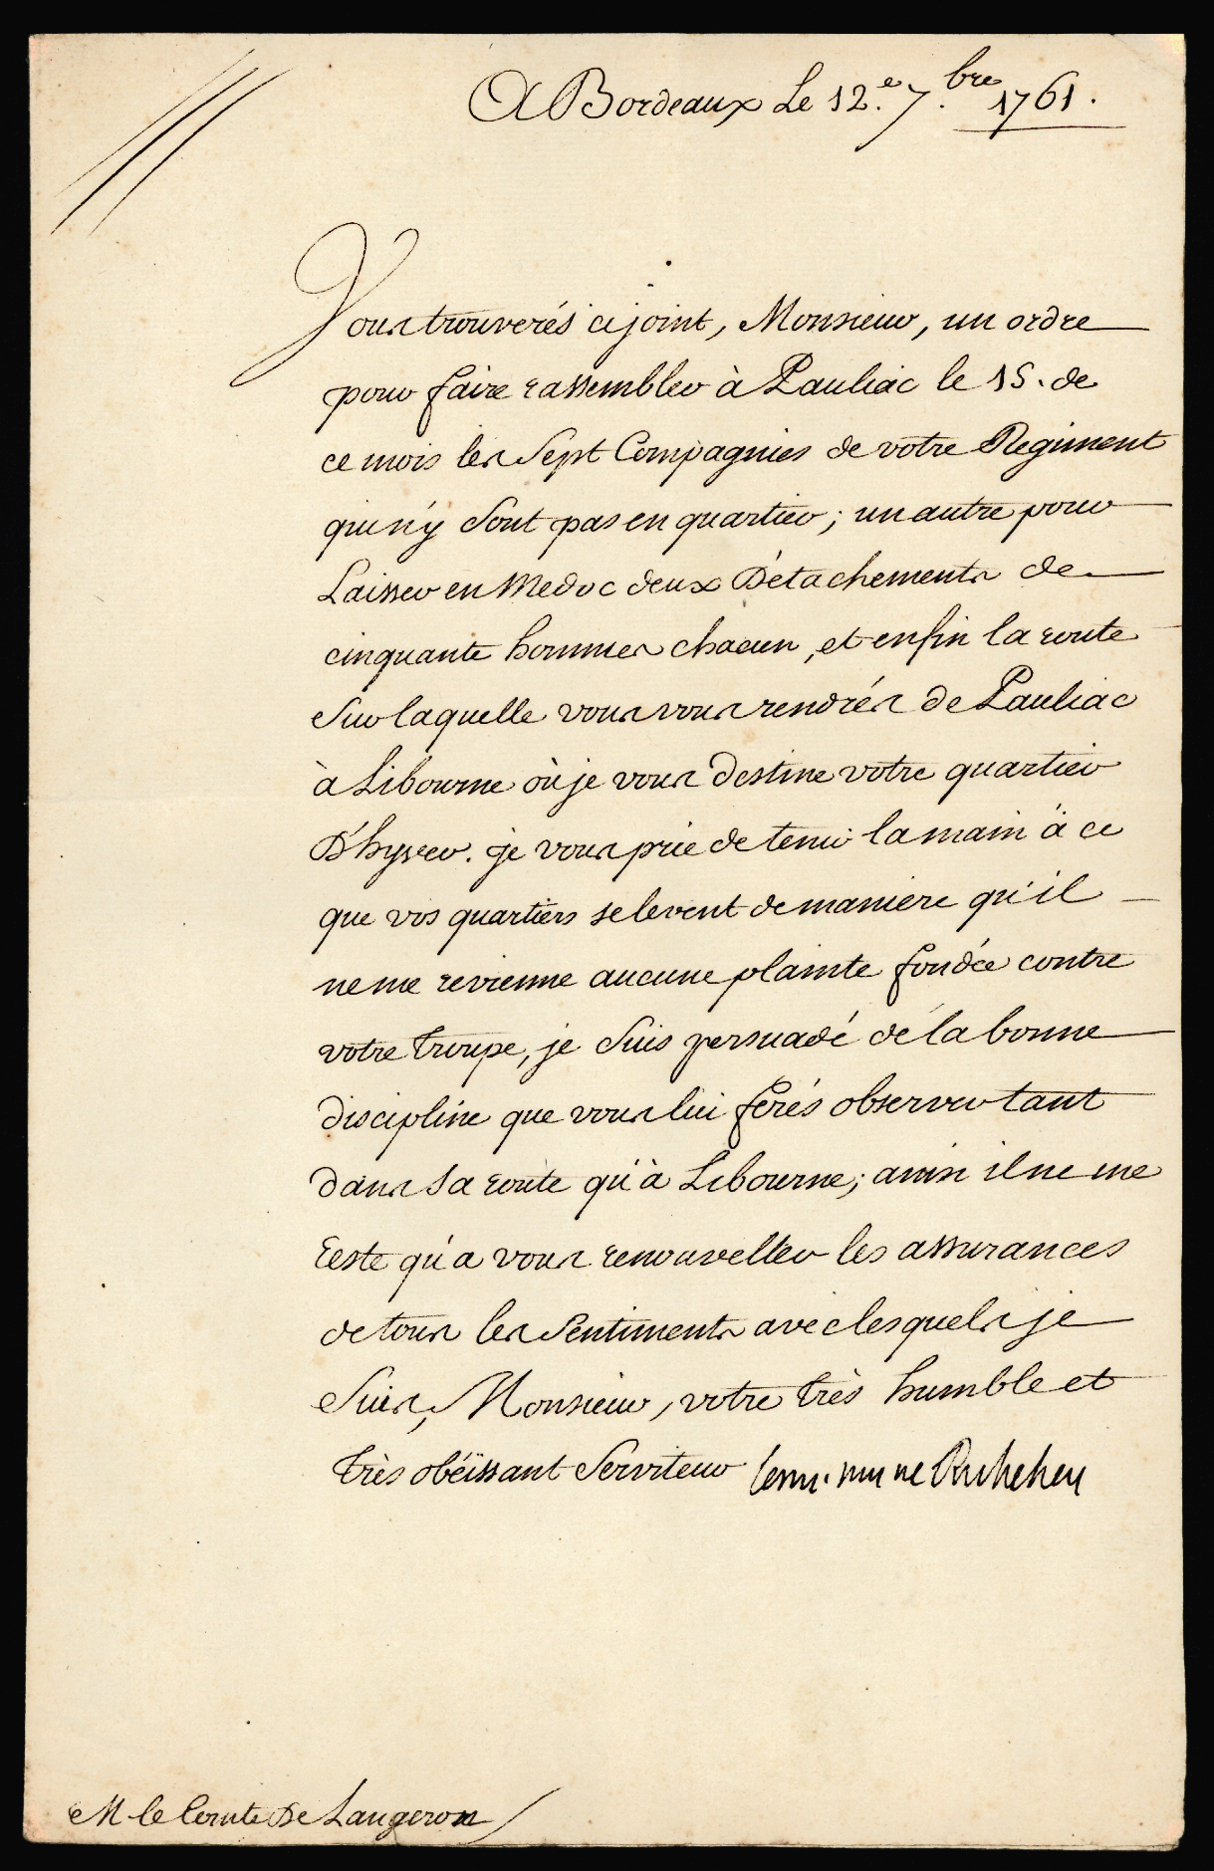 A Bordeaux Le 12.e 7.bre 1761.
Vous trouverés cijoint, Monsieur, un ordre
pour faire rassembler à Pauliac le 15. de
ce mois les Sept Compagnies de votre Regiment
qui n'y sont pas en quartier; un autre pour
Laisser en Medoc deux Détachements de
cinquante hommes chacun, et enfin la route
Sur laquelle vous vous rendrés de Pauliac
à Libourne où je vous destine votre quartier
D'hyver. je vous prie de tenir la main à ce
que vos quartiers se levent de maniere qu'il
ne me revienne aucune plainte fondée contre
votre troupe, je suis persuadé de la bonne
discipline que vous lui ferés observer tant
dans sa route qu'à Libourne; ainsi il ne me
reste qu'a vous renouveller les assurances
de tous les sentiments avec lesquels je
suis, Monsieur, votre très humble et
très obéissant Serviteur Richelieu
M le Comte De Langeron